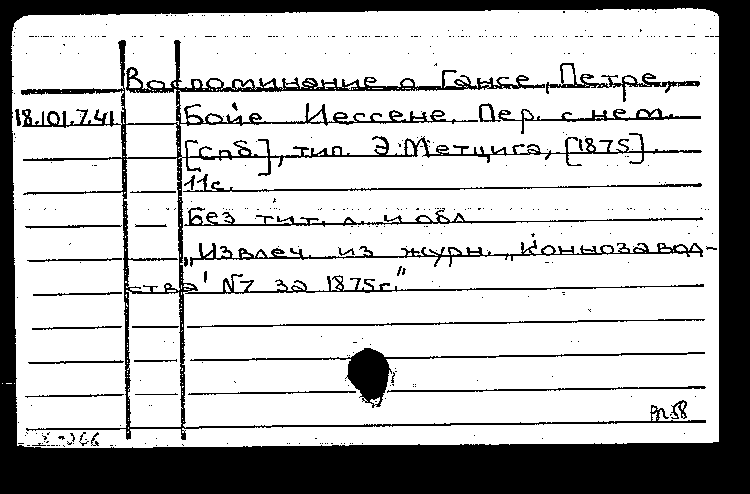 Воспоминание о Гансе, Петре,
18.101.7.41 Бойе Иессене. Пер. с нем.
[Спб.], тип. Э. Метцига, [1875]
11с.
Без тит. л. и обл
„Извлеч. из журн. „Коннозавод-
ства" №7 за 1875г."